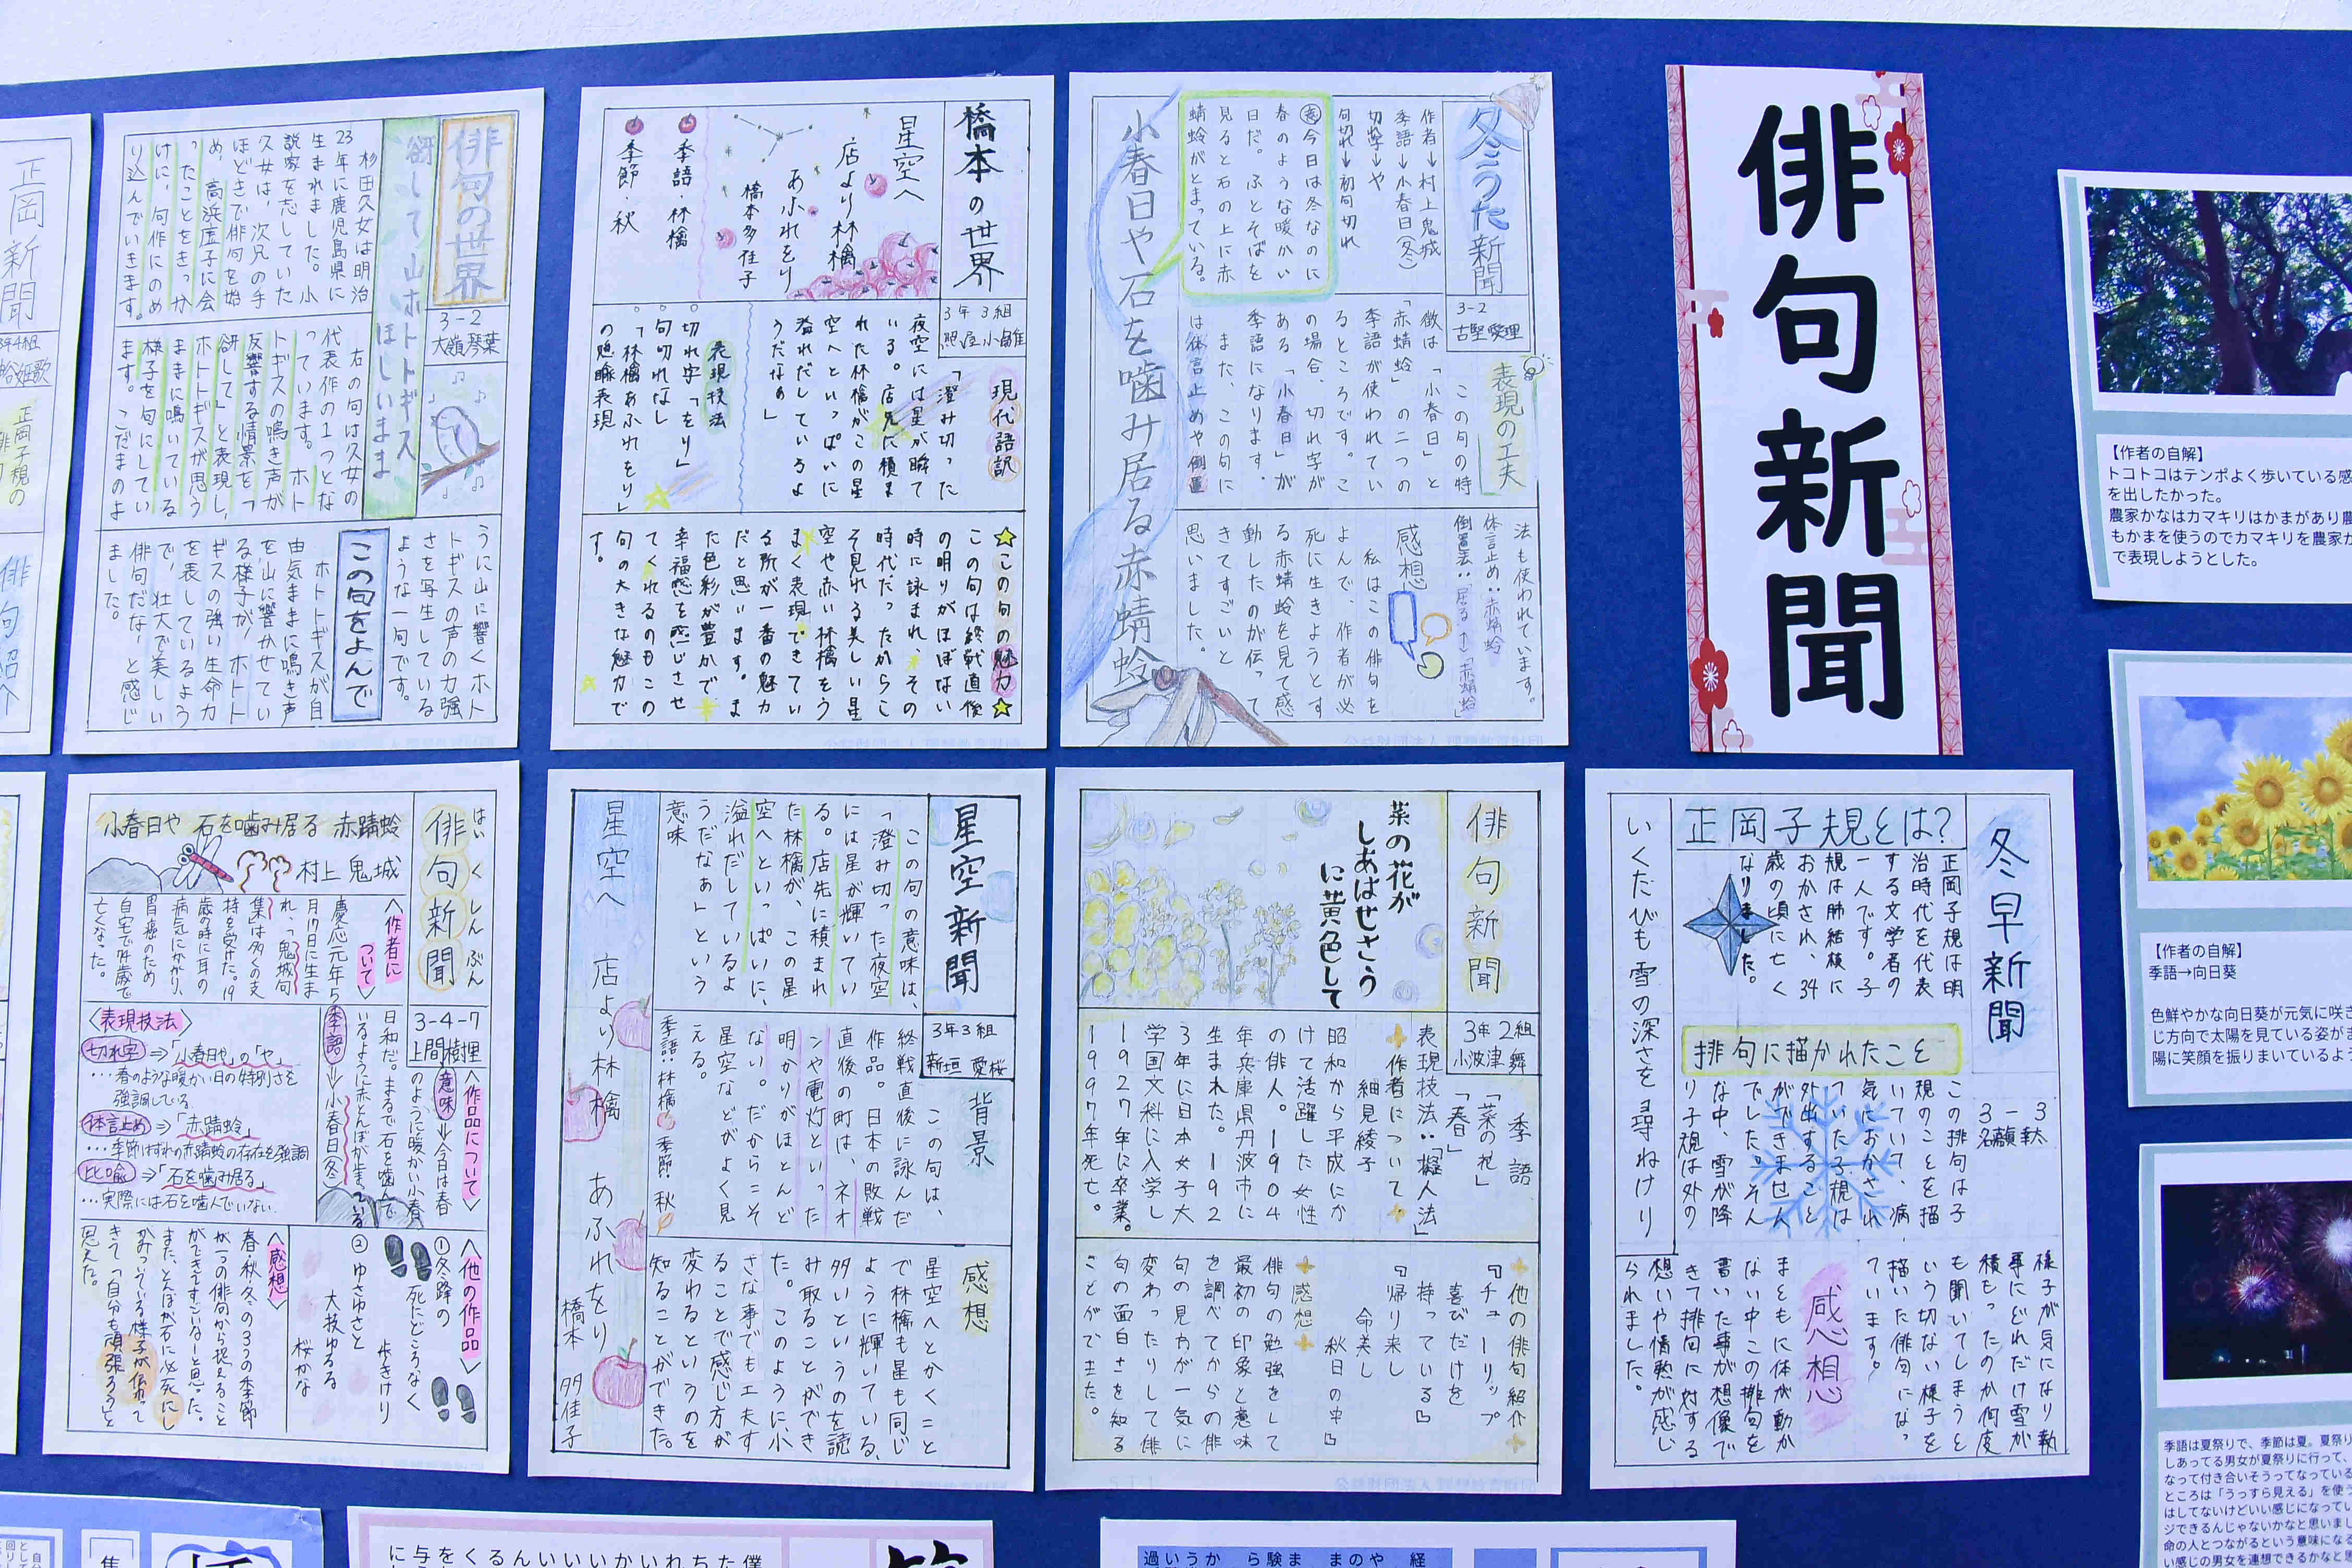 俳句新聞
冬うた新聞
3-2
古堅愛理
作者→村上鬼城
季語→小春日(冬)
切字→や
句切れ→初句切れ
今日は冬なのに
春のような暖かい
日だ。ふとそばを
見ると石の上に赤
蜻蛉がとまっている。
小春日や石を噛み居る赤蜻蛉
表現の工夫
この句の特
徴は「小春日」と
「赤蜻蛉」の二つの
季語が使われてい
るところです。こ
の場合、切れ字が
ある「小春日」が
季語になります。
また、この句に
は体言止めや倒置
法も使われています。
体言止め:赤蜻蛉
倒置法:「居る↑↓赤蜻蛉」
感想
私はこの俳句を
よんで、作者が必
死に生きようとす
る赤蜻蛉を見て感
動したのが伝って
きてすごいと
思いました。
橋本の世界
3年3組
星空へ
店より林檎
あふれをり
橋本多佳子
季語・林檎
季節・秋
現代語訳
「澄み切った
夜空には星が瞬て
いる。店先に積ま
れた林檎がこの星
空へといっぱいに
溢れだしているよ
うだなぁ」
表現技法
切れ字「をり」
句切れなし
「林檎あふれをり」
の隠喩表現
☆この句の魅力☆
この句は終戦直後
の明りがほぼない
時に詠まれ、その
時代だったからこ
そ見れる美しい星
空や赤い林檎をう
まく表現できてい
る所が一番の魅力
だと思います。ま
た色彩が豊かで
幸福感を感じさせ
てくれるのもこの
句の大きな魅力で
す。
俳句の世界
3-2
大嶺琴葉
谺して山ホトトギス
ほしいまま
杉田久女は明治
23年に鹿児島県に
生まれました。小
説家を志していた
久女は、次兄の手
ほどきで俳句を始
め、高浜虚子に会
ったことをきっか
けに、句作にのめ
り込んでいきます。
右の句は久女の
代表作の1つとな
っています。ホト
トギスの鳴き声が
反響する情景をっ
谺して」と表現し、
ホトトギスが思う
ままに鳴いている
様子を句にしてい
ます。こだまのよ
うに山に響くホト
トギスの声の力強
さを写生している
ような一句です。
この句をよんで
ホトトギスが自
由気ままに鳴き声
を山に響かせてい
る様子が、ホトト
ギスの強い生命力
を表しているよう
で、壮大で美しい
俳句だな、と感じ
ました。
正岡新聞
3年4組
正岡子規の
俳句紹介
冬早新聞
3-3
正岡子規とは?
正岡子規は明
治時代を代表
する文学者の
一人です。子
規は肺結核に
おかされ、34
歳の頃に亡く
なりました。
いくたびも雪の深さを尋ねけり
俳句に描かれたこと
この俳句は子
規のことを描
いていて、病
気におかされ
ていた子規は
外出すること
ができません
でした。そん
な中、雪が降
り子規は外の
様子が気になり執
事にどれだけ雪が
積もったのか何度
も聞いてしまうと
いう切ない様子を
描いた俳句になっ
ています。
感想
まともに体が動か
ない中この俳句を
書いた事が想像で
きて俳句に対する
想いや情熱が感じ
られました。
俳句新聞
3年2組
小波津舞
菜の花が
しあはせさう
に黄色して
季語
「菜の花」
「春」
表現技法:「擬人法」
作者について
細見綾子
昭和から平成にか
けて活躍した女性
の俳人。1904
年兵庫県丹波市に
生まれた。192
3年に日本女子大
学国文科に入学し
1927年に卒業。
1997年死亡。
他の俳句紹介
『チューリップ
喜びだけを
持っている』
『帰り来し
命美し
秋日の中』
感想
俳句の勉強をして
最初の印象と意味
を調べてからの俳
句の見方が一気に
変わったりして俳
句の面白さを知る
ことができた。
星空新聞
3年3組
新垣愛桜
この句の意味は、
「澄み切った夜空
には星が輝いてい
る。店先に積まれ
た林檎が、この星
空へといっぱいに、
溢れだしているよ
うだなぁ」という
意味
星空へ 店より林檎 あふれをり 橋本多佳子
背景
この句は、
終戦直後に詠んだ
作品。日本の敗戦
直後の町は、ネオ
ンや電灯といった
明かりがほとんど
ない。だからこそ
星空などがよく見
える。
季語:林檎 季節:秋
感想
星空へとかくこと
で林檎も星も同じ
ように輝いている、
多いというのを読
み取ることができ
た。このように、小
さな事でも工夫す
ることで感じ方が
変わるというのを
知ることができた。
はいくしんぶん
俳句新聞
3-4-7
上間樹理
小春日や 石を噛み居る 赤蜻蛉
村上鬼城
〈作者に
ついて〉
慶応元年5
月17日に生ま
れ、「鬼城句
集」は多くの支
持を受けた。19
歳の時に耳の
病気にかかり、
胃癌のため
自宅で74歳で
亡くなった。
〈作品について〉
意味⇒今日は春
のように暖かい小春
日和だ。まるで石を噛んで
いるように赤とんぼが止まっている
季語⇒小春日(冬)
〈表現技法〉
切れ字⇒「小春日や」の「や」
…春のような暖かい日の特別さを
強調している
体言止め⇒「赤蜻蛉」
…季節はずれの赤蜻蛉の存在を強調
比喩⇒「石を噛み居る」
…実際には石を噛んでいない
〈他の作品〉
①冬蜂の
死にどころなく
歩きけり
②ゆさゆさと
大枝ゆるる
桜かな
〈感想〉
春・秋・冬の3つの季節
が一つの俳句から捉えること
ができてすごいなーと思った。
また、とんぼが石に必死にし
がみついている様子が伝わって
きて、「自分も頑張ろう」と
思えた。
【作者の自解】
トコトコはテンポよく歩いている感
を出したかった。
農家かなはカマキリはかまがあり農
もかまを使うのでカマキリを農家か
で表現しようとした。
【作者の自解】
季語→向日葵
色鮮やかな向日葵が元気に咲き
じ方向で太陽を見ている姿がま
陽に笑顔を振りまいているよう
季語は夏祭りで、季節は夏。夏祭り
しあってる男女が夏祭りに行って、
なって付き合いそうってなっている
ところは「うっすら見える」を使う
はしてないけどいい感じになってい
ジできるんじゃないかなと思いまし
命の人とつながるという意味になる
い感じの男女を連想できるかなと